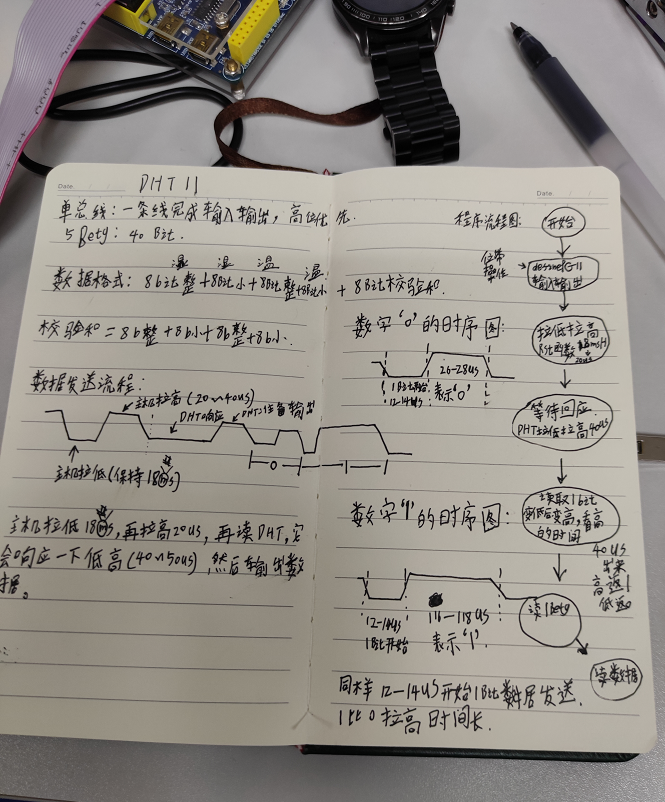 Date
DHT11
单总线：一条线完成输入输出，高位优先.
5 Bety: 40 Bit.
湿 湿 温 温
数据格式: 8bit整+8Bit小+8Bit整+8Bit小 + 8Bit校验和.
校验和=8b整+8b小+8b整+8b小.
数据发送流程:
主机拉高(20~40us)
DHT响应
DHT准备输出
主机拉低(保持18ms)
0
1
主机拉低18ms,再拉高20us,再读DHT,它
会响应一下低高(40~50us),然后输出数
据。
Date
程序流程图:
开始
位带
操作
输入输出
数字'0'的时序图:
26-28us
1Bit开始
12-14us
表示'0'
拉低拉高
20us
等待回应.
DHT拉低拉高40us
数字'1'的时序图:
12-14us
1Bit开始
116-118us
表示'1'
读取1bit
变低后变高,看高
的时间
40us
出来
高返1
低返0
读1Bety
读数据
同样12-14us开始1Bit数据发送.
1比0拉高时间长.